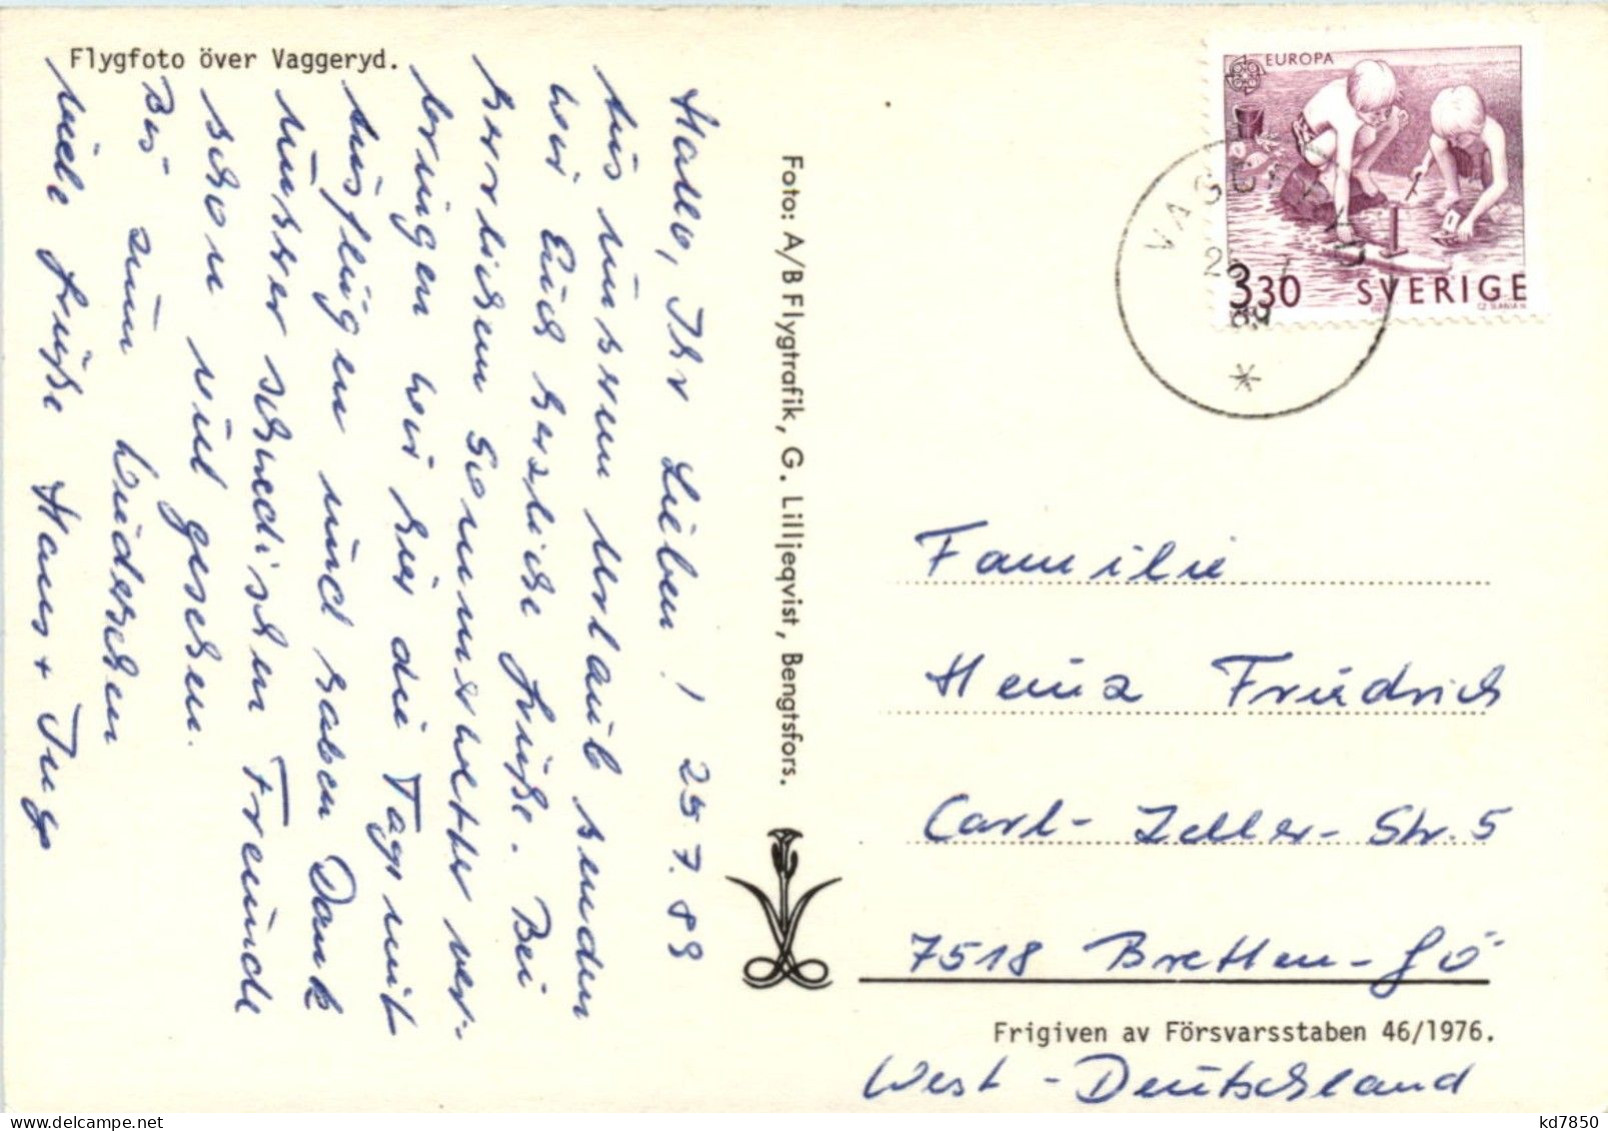 Flygfoto över Vaggeryd.
Hallo, Ihr Lieben! 25.7.89
Aus unserem Urlaub senden
wir Euch herzliche Grüße. Bei
herrlichem Sommerwetter ver-
bringen wir hier die Tage mit
Ausflügen und haben Dank
unserer schwedischen Freunde
schon viel gesehen.
Bis zum Wiedersehen
viele Grüße Hans + Inge
Foto: A/B Flygtrafik, G. Lilljeqvist, Bengtsfors.
EUROPA
330 SVERIGE
VAGGERYD
89
Familie
Heinz Friedrich
Carl-Zeller-Str. 5
7518 Bretten-Gö
Frigiven av Försvarsstaben 46/1976.
West-Deutschland
kd7850